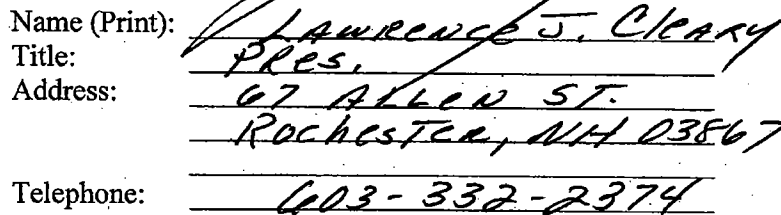 Name (Print): Lawrence J. Cleary
Title: Pres.
Address: 67 Allen St.
Rochester, NH 03867
Telephone: 603-332-2374